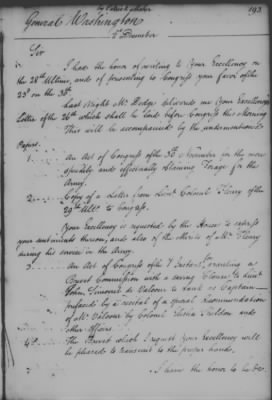 by Patrick Maher 193
General Washington
2d December
Sir
I had the honor of writing to Your Excellency on
the 28th Ultimo, and of presenting to Congress your favor of the
23d on the 30th
Last Night Mr Dodge delivered me Your Excellency's
Letter of the 26th which shall be laid before Congress this Morning
This will be accompanied by the undermentioned
Papers.
1. An Act of Congress of the 30th November for the more
speedily and effectually obtaining Forage for the
Army.
2. Copy of a Letter from Lieut Colonel Fleury of the
29th Ulto to Congress.
Your Excellency is requested by the House to express
your sentiments thereon, and also of the Merits of Mr Fleury
during his service in the Army.
3. An Act of Congress of the granting a
Brevet Commission with a saving Clause to Lieut
John Simouet de Valcour to Rank as Captain
prefaced by a recital of a special recommendation
of Mr Valcour by Colonel and
other Officers.
4th. The Brevet which I request your Excellency will
be pleased to transmit to the proper hands.
I have the honor to be &c.